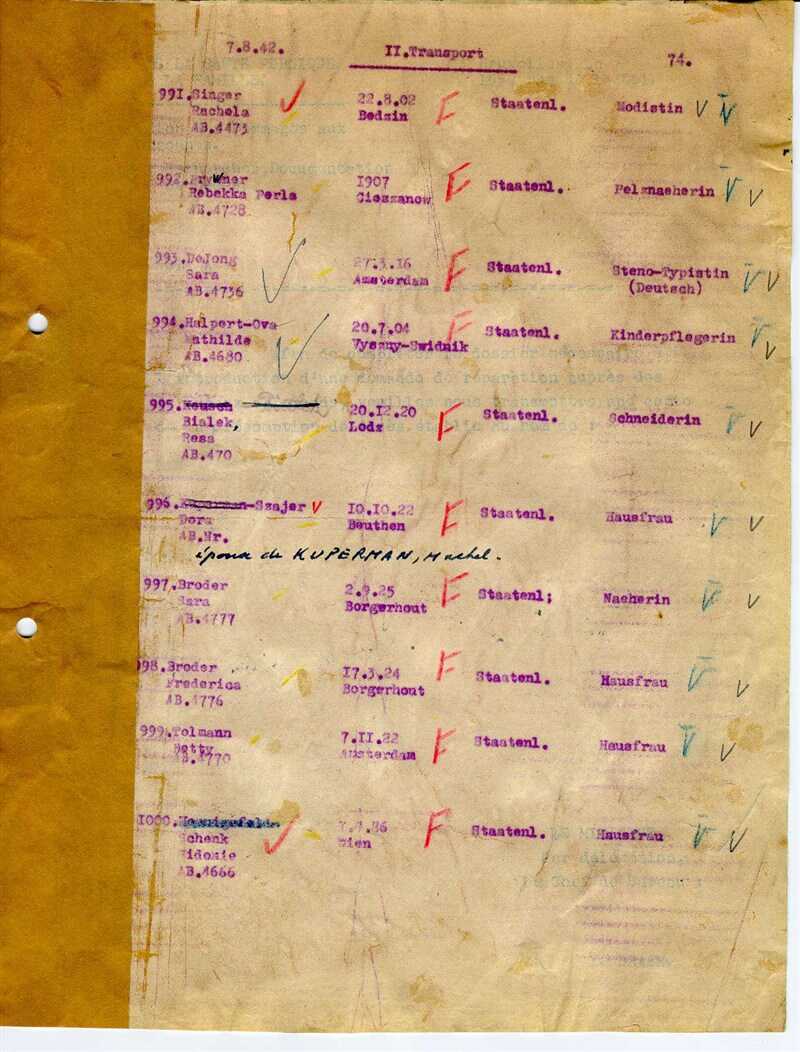 7.8.42. II.Transport 74.
991.Singer 22.8.02 F Staatenl. Modistin V V
Rachela Bedzin
AB.4473
992. 1907 F Staatenl. Pelznaeherin V V
Rebekka Perla Cieszanow
AB.4728
993.DeJong 27.3.16 F Staatenl. Steno-Typistin V V
Sara Amsterdam (Deutsch)
AB.4736
994.Halpert-Ova 20.7.04 F Staatenl. Kinderpflegerin V V
Mathilde Vyszny-Swidnik
AB.4680
995. 20.12.20 F Staatenl. Schneiderin V V
Bialek, Lodz
Resa
AB.470
996. -Szajer V 10.10.22 F Staatenl. Hausfrau V V
Dora Beuthen
AB.Nr.
épouse de KUPERMAN,
997.Broder 2.9.25 F Staatenl; Naeherin V V
Sara Borgerhout
AB.4777
998.Broder 17.3.24 F Staatenl. Hausfrau V V
Frederica Borgerhout
AB.4776
999.Tolmann 7.11.22 F Staatenl. Hausfrau V V
Betty Amsterdam
AB.4770
1000. F Staatenl. Hausfrau V V
Schenk Wien
Sidonie
AB.4666